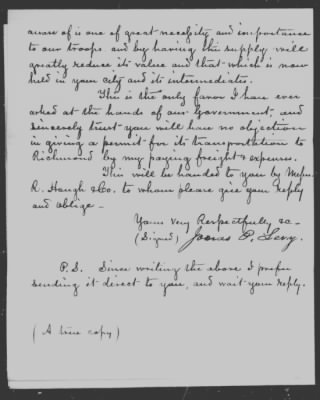 aware of is one of great necessity and importance
to our troops and by having this supply will
greatly reduce its value and that which is now
held in your city and its intermediates.
This is the only favor I have ever
asked at the hands of our Government, and
sincerely trust you will have no objection
in giving a permit for its transportation to
Richmond by my paying freight & expenses.
This will be handed to you by Messrs.
R. Haugh &Co. to whom please give your reply
and oblige -
Yours Very Respectfully &c -
(Signed) Jonas P. Levy.
P.S. Since writing the above I prefer
sending it direct to you, and wait your reply.
(A true copy)